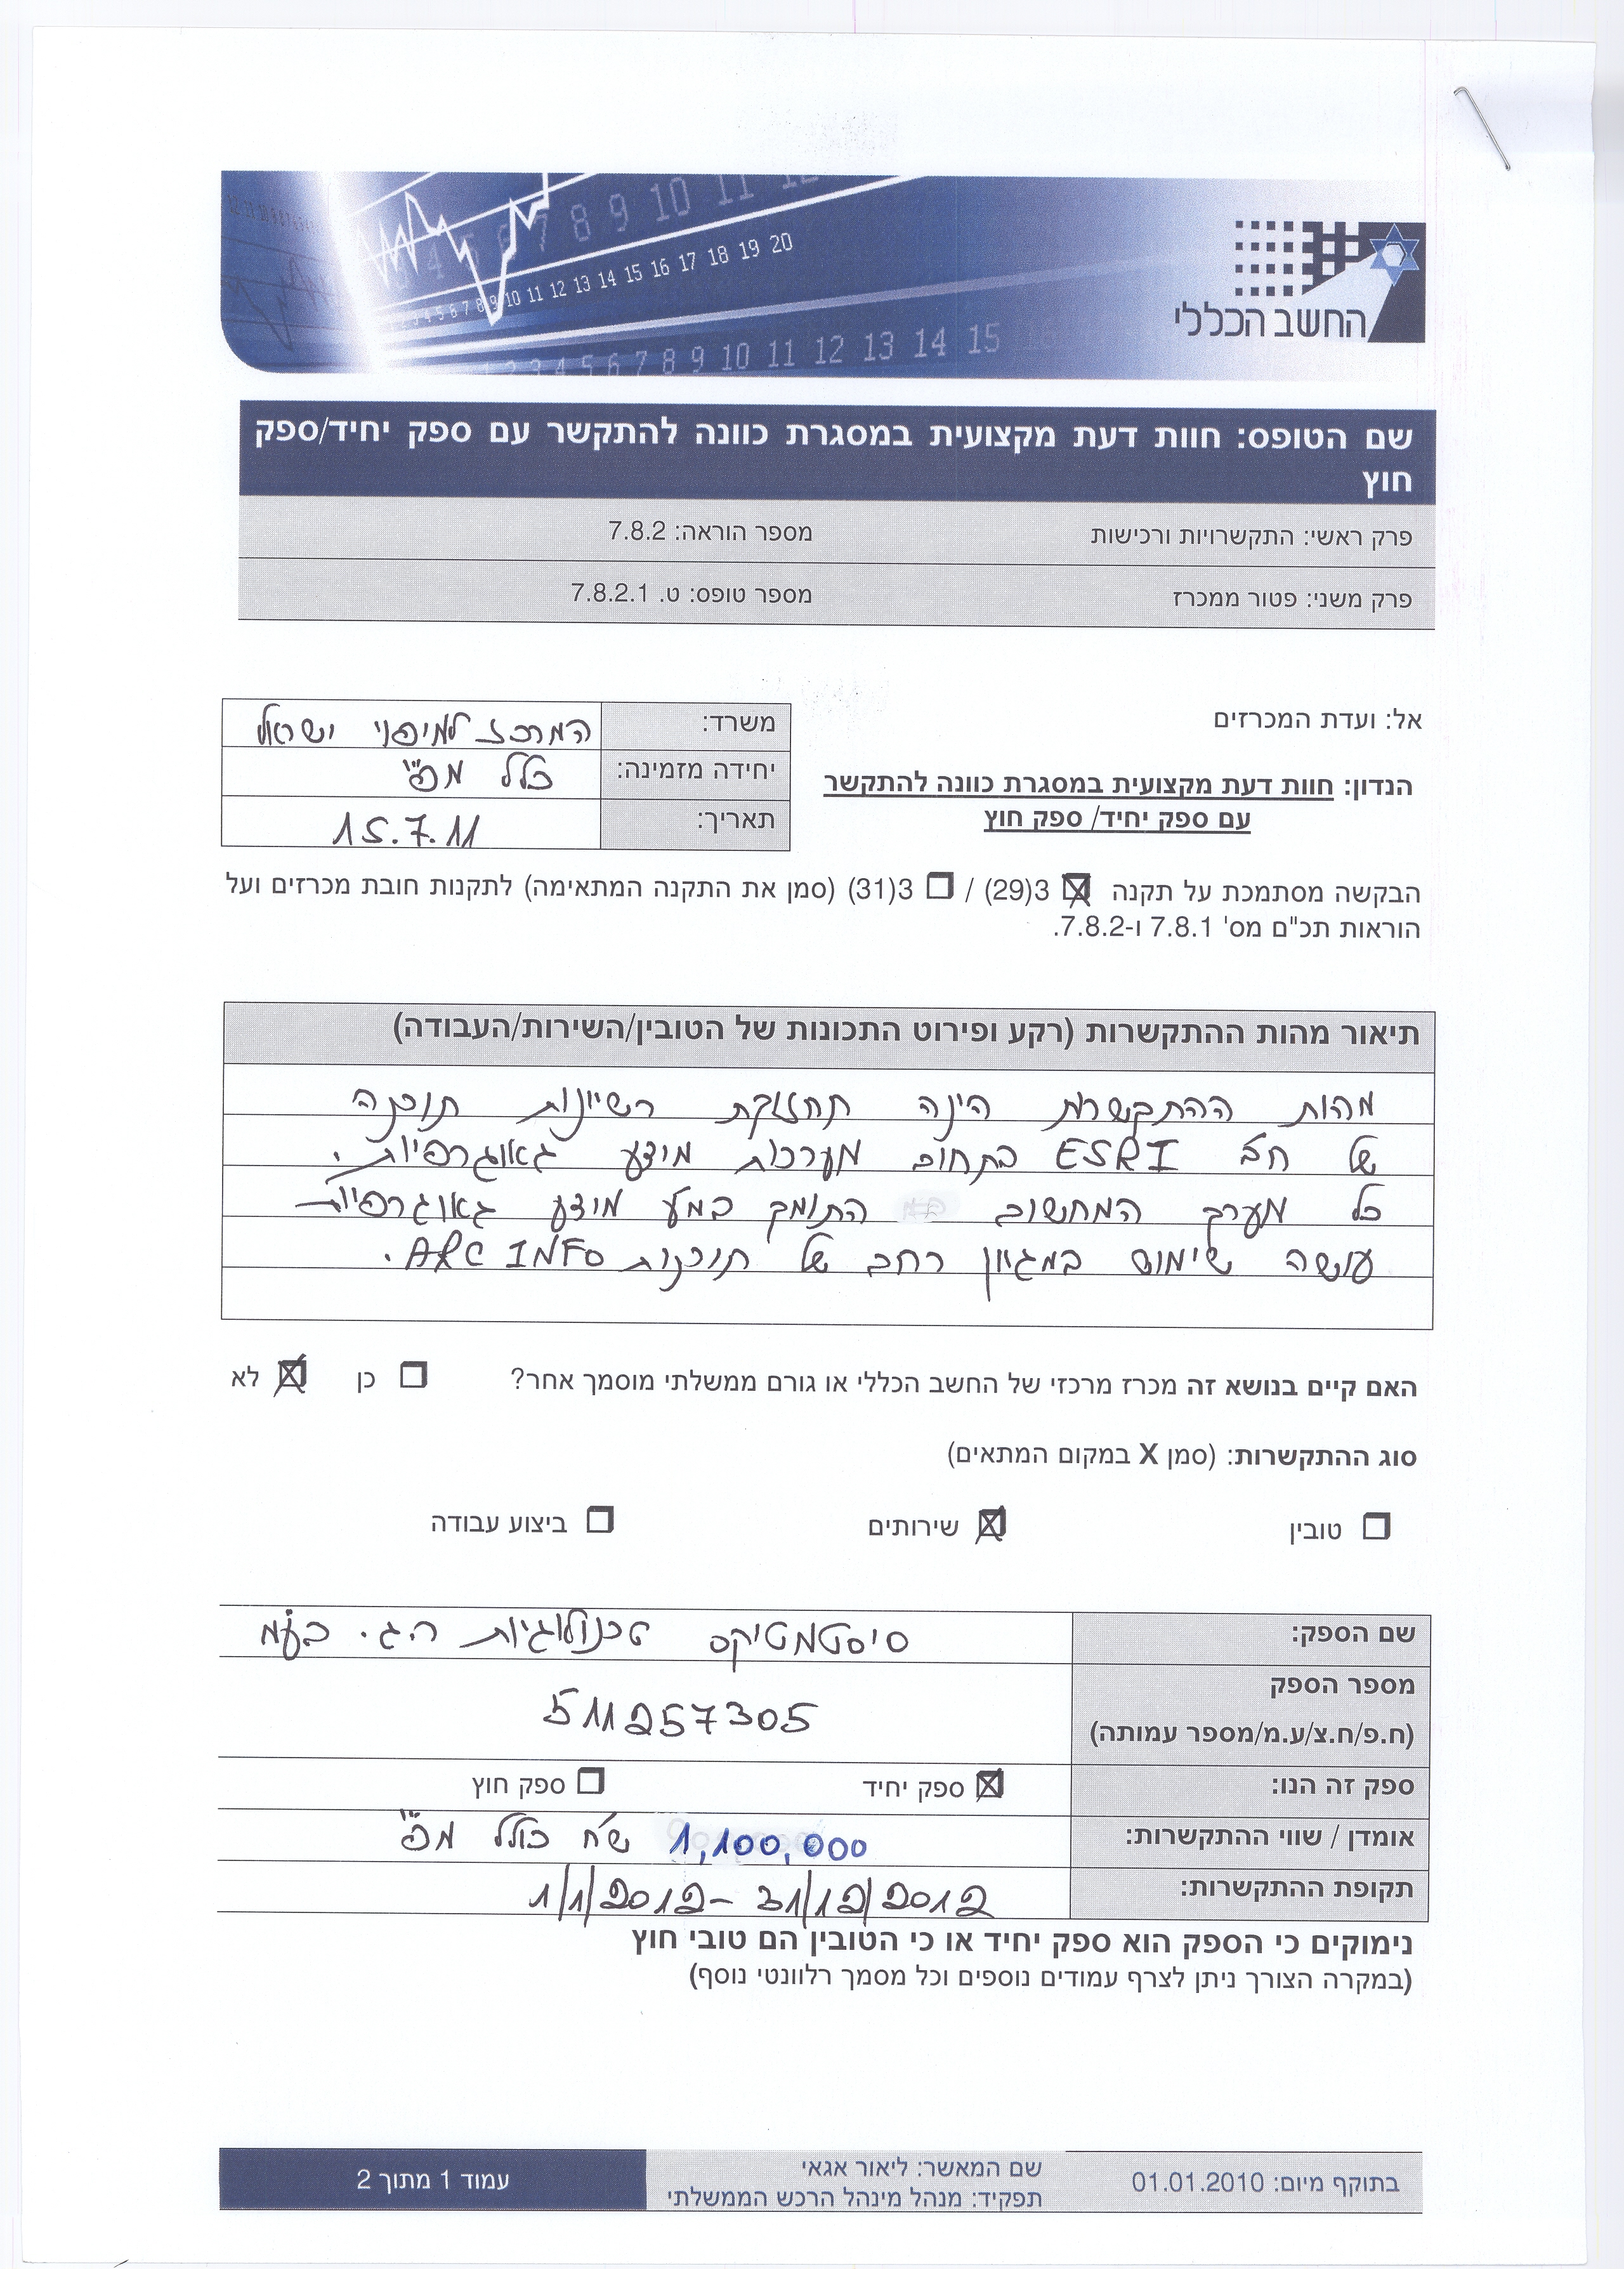 החשב הכללי
שם הטופס: חוות דעת מקצועית במסגרת כוונה להתקשר עם ספק יחיד/ספק
חוץ
פרק ראשי: התקשרויות ורכישות מספר הוראה: 7.8.2
פרק משני: פטור ממכרז מספר טופס: ט. 7.8.2.1
אל: ועדת המכרזים
משרד: המרכז למיפוי ישראל
יחידה מזמינה: כלל מפ"י
תאריך: 15.7.11
הנדון: חוות דעת מקצועית במסגרת כוונה להתקשר
עם ספק יחיד/ ספק חוץ
הבקשה מסתמכת על תקנה ☒ 3(29) / ☐ 3(31) (סמן את התקנה המתאימה) לתקנות חובת מכרזים ועל
הוראות תכ"ם מס' 7.8.1 ו-7.8.2.
תיאור מהות ההתקשרות (רקע ופירוט התכונות של הטובין/השירות/העבודה)
מהות ההתקשרות הינה תחזוקת רשיונות תוכנה
של חב' ESRI בתחום מערכות מידע גאוגרפיות.
כל מערך המחשוב התומך במע' מידע גאוגרפיות
עושה שימוש במגוון רחב של תוכנות ARC INFO.
האם קיים בנושא זה מכרז מרכזי של החשב הכללי או גורם ממשלתי מוסמך אחר? ☐ כן ☒ לא
סוג ההתקשרות: (סמן X במקום המתאים)
☐ טובין ☒ שירותים ☐ ביצוע עבודה
שם הספק: סיסטמטיקס טכנולוגיות ה.ג. בע"מ
מספר הספק
(ח.פ/ח.צ/ע.מ/מספר עמותה) 511257305
ספק זה הנו: ☒ ספק יחיד ☐ ספק חוץ
אומדן / שווי ההתקשרות: 1,100,000 ש"ח כולל מפ"י
תקופת ההתקשרות: 1/1/2012 – 31/12/2012
נימוקים כי הספק הוא ספק יחיד או כי הטובין הם טובי חוץ
(במקרה הצורך ניתן לצרף עמודים נוספים וכל מסמך רלוונטי נוסף)
בתוקף מיום: 01.01.2010
שם המאשר: ליאור אגאי
תפקיד: מנהל מינהל הרכש הממשלתי
עמוד 1 מתוך 2